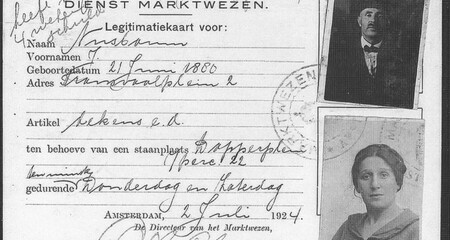 DIENST MARKTWEZEN.
heeft
4 weken
schuld
Legitimatiekaart voor:
Naam Nusbaum
Voornamen J.
Geboortedatum 21 Juni 1880
Adres Transvaalplein 2
Artikel e.d.
ten behoeve van een staanplaats Dapperplein
perc 22
gedurende Donderdag en Zaterdag
AMSTERDAM, 2 Juli 1924.
De Directeur van het Marktwezen,
MARKTWEZEN